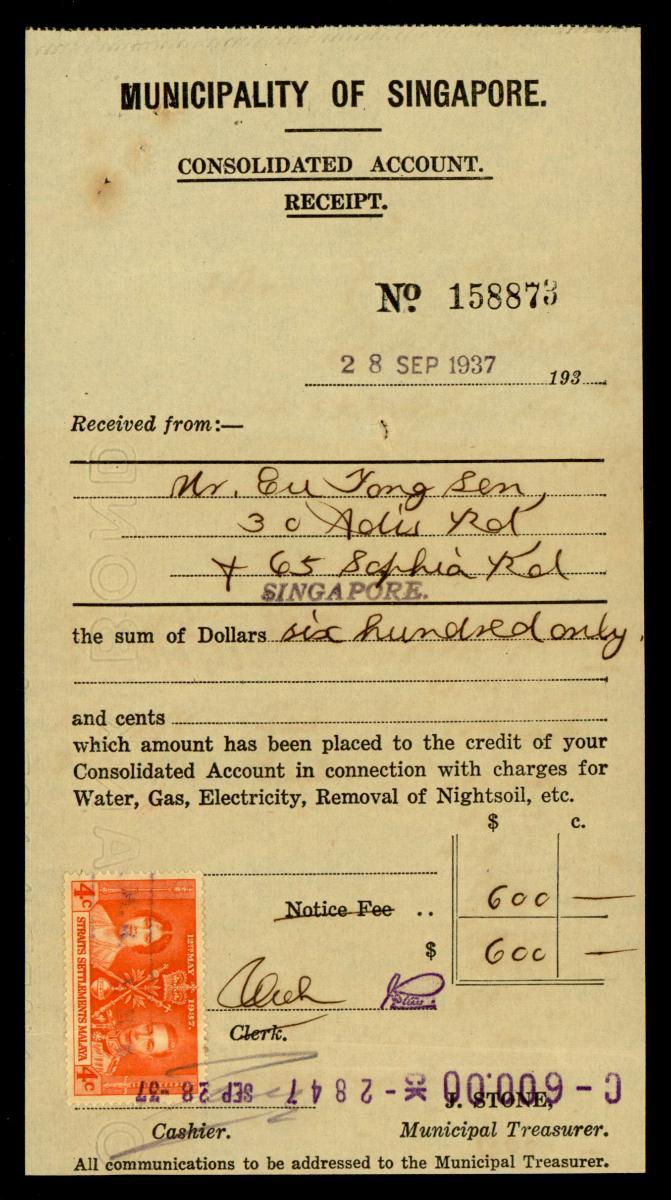 MUNICIPALITY OF SINGAPORE.
CONSOLIDATED ACCOUNT.
RECEIPT.
No. 158873
28 SEP 1937 193
Received from:—
Mr. Eu Tong Sen,
3 c Adis Rd
+ 65 Sophia Rd
SINGAPORE.
the sum of Dollars six hundred only.
and cents
which amount has been placed to the credit of your
Consolidated Account in connection with charges for
Water, Gas, Electricity, Removal of Nightsoil, etc.
$ c.
Notice Fee .. 600 —
$ 600 —
Clerk.
4c STRAITS SETTLEMENTS MALAYA 4c
12TH MAY 1937.
C-600.00 * -2847 SEP 28-37
J. STONE,
Cashier. Municipal Treasurer.
All communications to be addressed to the Municipal Treasurer.